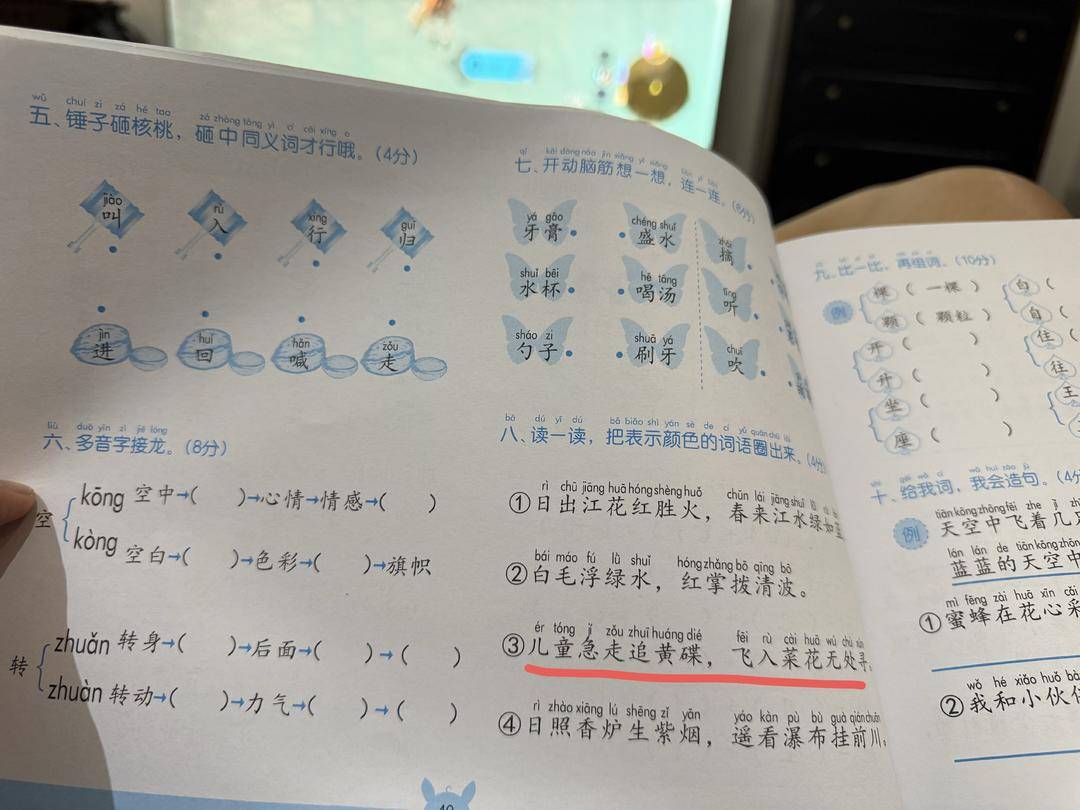 wǔ chuí zi zá hé tao zá zhòng tóng yì cí cái xíng o
五、锤子砸核桃，砸中同义词才行哦。（4分）
jiào rù xíng guī
叫 入 行 归
jìn huí hǎn zǒu
进 回 喊 走
liù duō yīn zì jiē lóng
六、多音字接龙。（8分）
空
kōng 空中→（ ）→心情→情感→（ ）
kòng 空白→（ ）→色彩→（ ）→旗帜
转
zhuǎn 转身→（ ）→后面→（ ）→（ ）
zhuàn 转动→（ ）→力气→（ ）→（ ）
qī kāi dòng nǎo jīn xiǎng yì xiǎng lián yì lián
七、开动脑筋想一想，连一连。（6分）
yá gāo chéng shuǐ zhāi
牙膏 盛水 摘
shuǐ bēi hē tāng tīng
水杯 喝汤 听
sháo zi shuā yá chuī
勺子 刷牙 吹
bā dú yì dú bǎ biǎo shì yán sè de cí yǔ quān chū lái
八、读一读，把表示颜色的词语圈出来。（4分）
rì chū jiāng huā hóng shèng huǒ chūn lái jiāng shuǐ lǜ
①日出江花红胜火，春来江水绿如蓝
bái máo fú lǜ shuǐ hóng zhǎng bō qīng bō
②白毛浮绿水，红掌拨清波。
ér tóng jí zǒu zhuī huáng dié fēi rù cài huā wú chù xún
③儿童急走追黄碟，飞入菜花无处寻
rì zhào xiāng lú shēng zǐ yān yáo kàn pù bù guà qián chuān
④日照香炉生紫烟，遥看瀑布挂前川。
九、比一比，再组词。（10分）
例
棵（ 一棵 ） 白（
颗（ 颗粒 ） 自（
开（ ） 住（
升（ ） 往（
坐（ ） 王
座（ ）
十、给我词，我会造句。（4分
tiān kōng zhōng fēi zhe jǐ
例 天空中飞着几
lán lán de tiān kōng zhōng
蓝蓝的天空中
mì fēng zài huā xīn cǎi
①蜜蜂在花心采
wǒ hé xiǎo huǒ bàn
②我和小伙伴